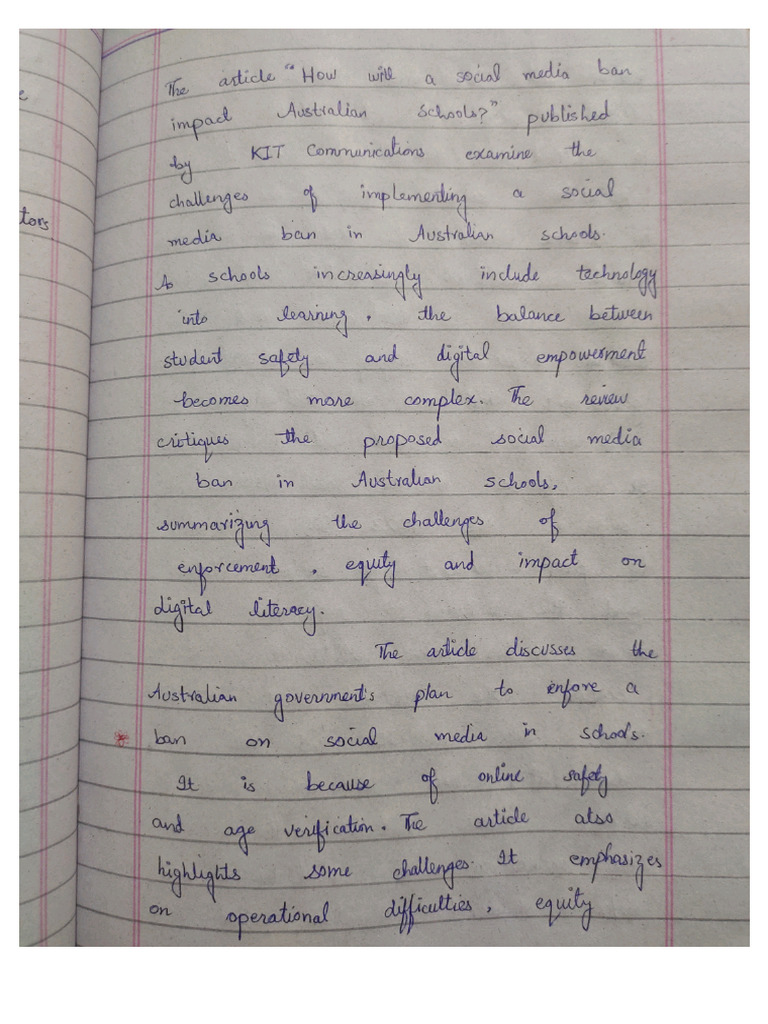 The article "How will a social media ban
impact Australian Schools?" published
by KIT Communications examine the
challenges of implementing a social
media ban in Australian schools.
As schools increasingly include technology
into learning, the balance between
student safety and digital empowerment
becomes more complex. The review
critiques the proposed social media
ban in Australian schools,
summarizing the challenges of
enforcement, equity and impact on
digital literacy.
The article discusses the
Australian government's plan to enfore a
* ban on social media in schools.
It is because of online safety
and age verification. The article also
highlights some challenges. It emphasizes
on operational difficulties, equity
tors